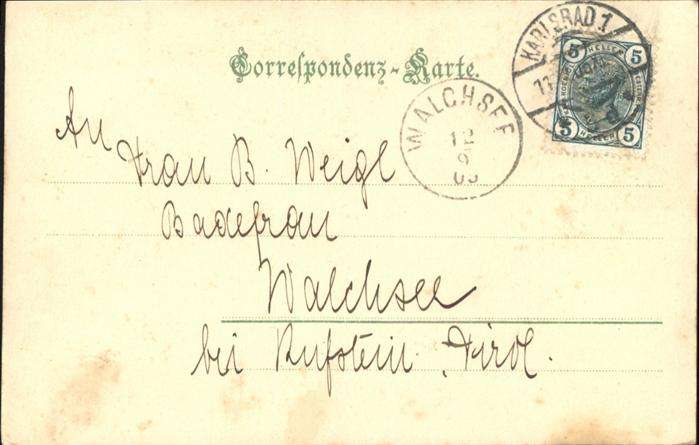 Correspondenz-Karte.
KARLSBAD 1
11
5 HELLER 5
5 HELLER 5
WALCHSEE
12
9
03
An
Frau B. Weigl
Badefrau
Walchsee
bei Kufstein, Tirol.